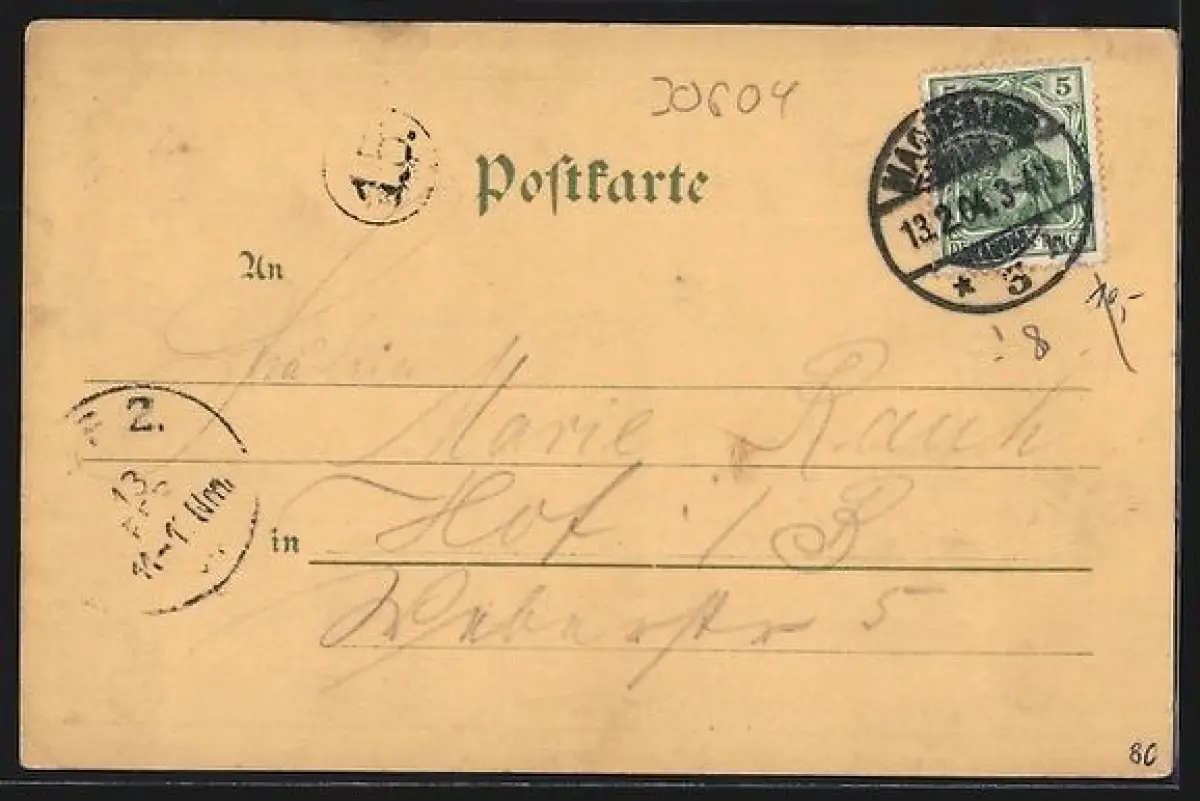 30604
5
15.
Postkarte
MAGDEBURG
13.2.04. 3-4N
* 3
An
8
Marie Rauh
2.
13
11-1 Nm.
Hof i/B
in
Weberstr 5
80